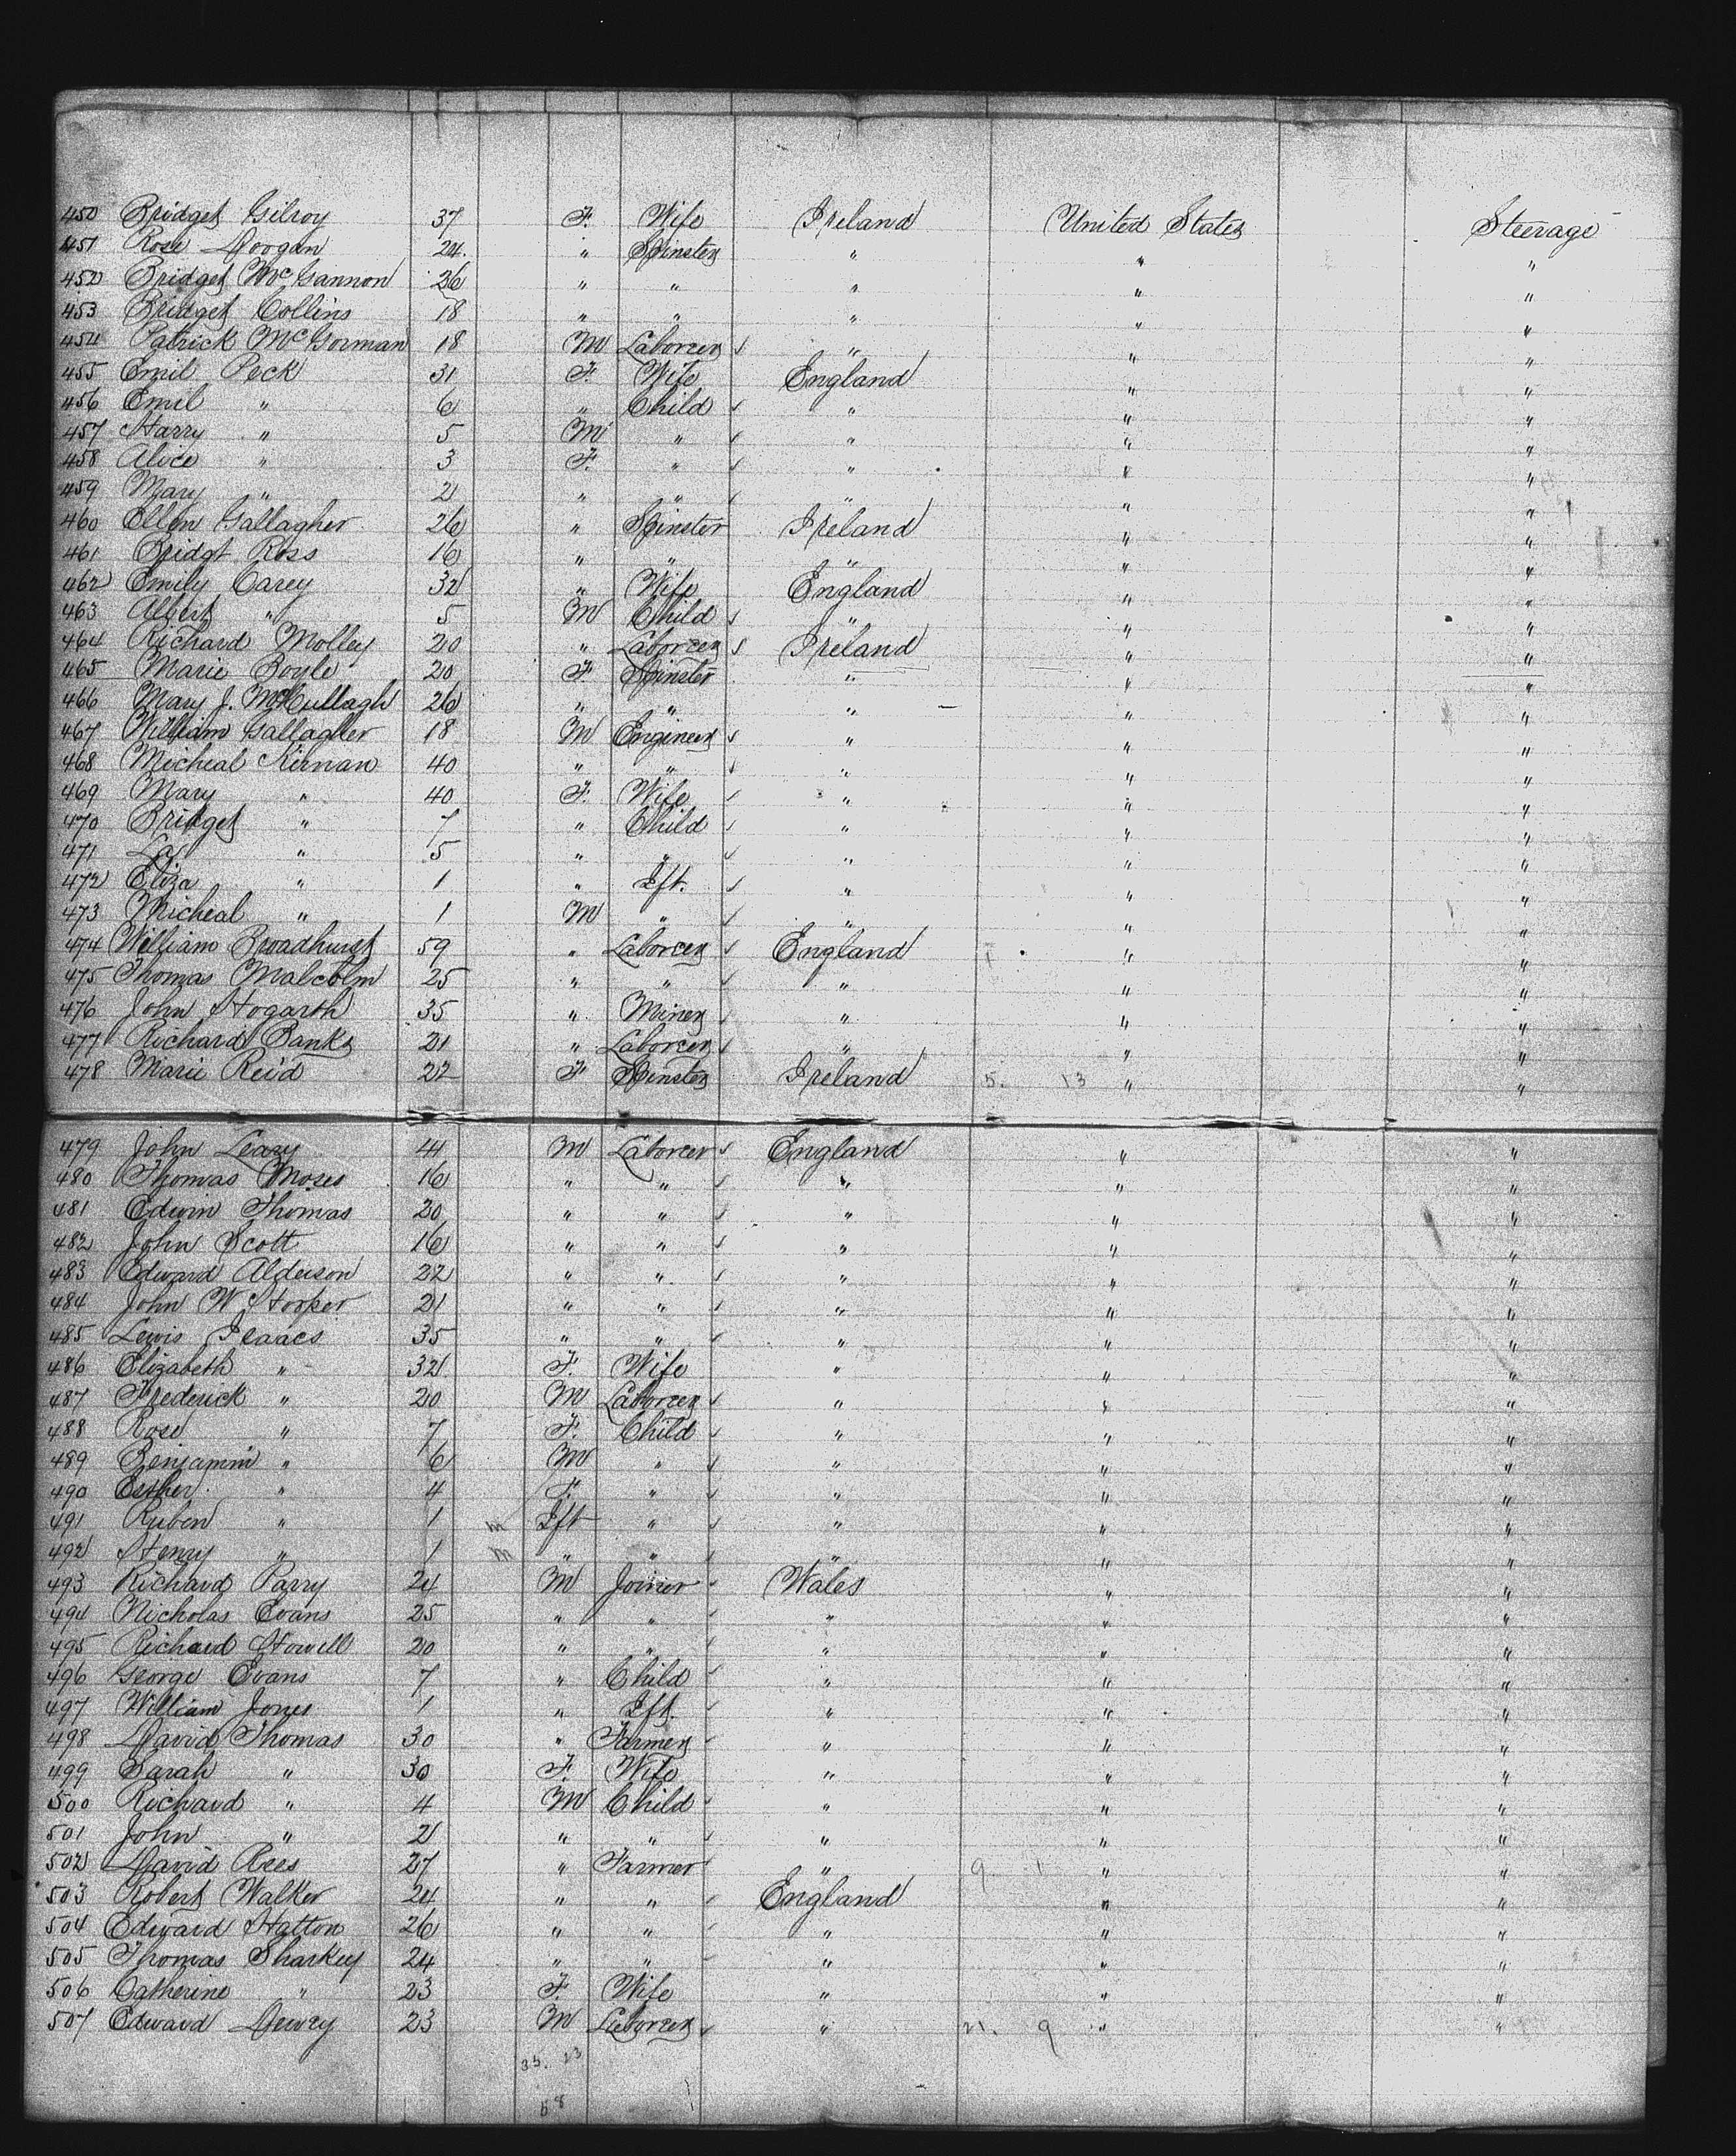 450 Bridget Gilroy 37 F. Wife Ireland United States Steerage
451 Rose Doogan 24. " Spinster " " "
452 Bridget McGannon 26 " " " " "
453 Bridget Collins 18 " " " " "
454 Patrick McGorman 18 M Laborer " " "
455 Emil Peck 31 F. Wife England " "
456 Emil " 6 " Child " " "
457 Harry " 5 M " " " "
458 Alice " 3 F. " " " "
459 Mary " 2 " " " " "
460 Ellen Gallagher 26 " Spinster Ireland " "
461 Bridgt Ross 16 " " " " "
462 Emily Carey 32 " Wife England " "
463 Albert " 5 M Child " " "
464 Richard Molley 20 " Laborer Ireland " "
465 Marie Boyle 20 F Spinster " " "
466 Mary J. McCullagh 26 " " " " "
467 William Gallagher 18 M Engineer " " "
468 Micheal Kirnan 40 " " " " "
469 Mary " 40 F. Wife " " "
470 Bridget " 7 " Child " " "
471 " 5 " " " " "
472 Eliza " 1 " Ift. " " "
473 Micheal " 1 M " " " "
474 William Broadhurst 59 " Laborer England " "
475 Thomas Malcolm 25 " " " " "
476 John Hogarth 35 " Miner " " "
477 Richard Banks 21 " Laborer " " "
478 Marie Reid 22 F Spinster Ireland 5. 13 " "
479 John Leary 44 M Laborer England " "
480 Thomas Moses 16 " " " " "
481 Edwin Thomas 20 " " " " "
482 John Scott 16 " " " " "
483 Edward Alderson 22 " " " " "
484 John W Hooper 21 " " " " "
485 Lewis Isaacs 35 " " " " "
486 Elizabeth " 32 F. Wife " " "
487 Frederick " 20 M Laborer " " "
488 Rose " 7 F. Child " " "
489 Benjamin " 6 M " " " "
490 Esther " 4 F. " " " "
491 Ruben " 1 m Ift " " " "
492 Henry " 1 m " " " " "
493 Richard Parry 24 M Joiner Wales " "
494 Nicholas Evans 25 " " " " "
495 Richard Howell 20 " " " " "
496 George Evans 7 " Child " " "
497 William Jones 1 " Ift. " " "
498 David Thomas 30 " Farmer " " "
499 Sarah " 30 F. Wife " " "
500 Richard " 4 M Child " " "
501 John " 2 " " " " "
502 David Rees 27 " Farmer " 9 1 " "
503 Robert Walker 24 " " England " "
504 Edward Hatton 26 " " " " "
505 Thomas Sharkey 24 " " " " "
506 Catherine " 23 F. Wife " " "
507 Edward Dewry 23 M Laborer " 21. 9 " "
35. 23
58